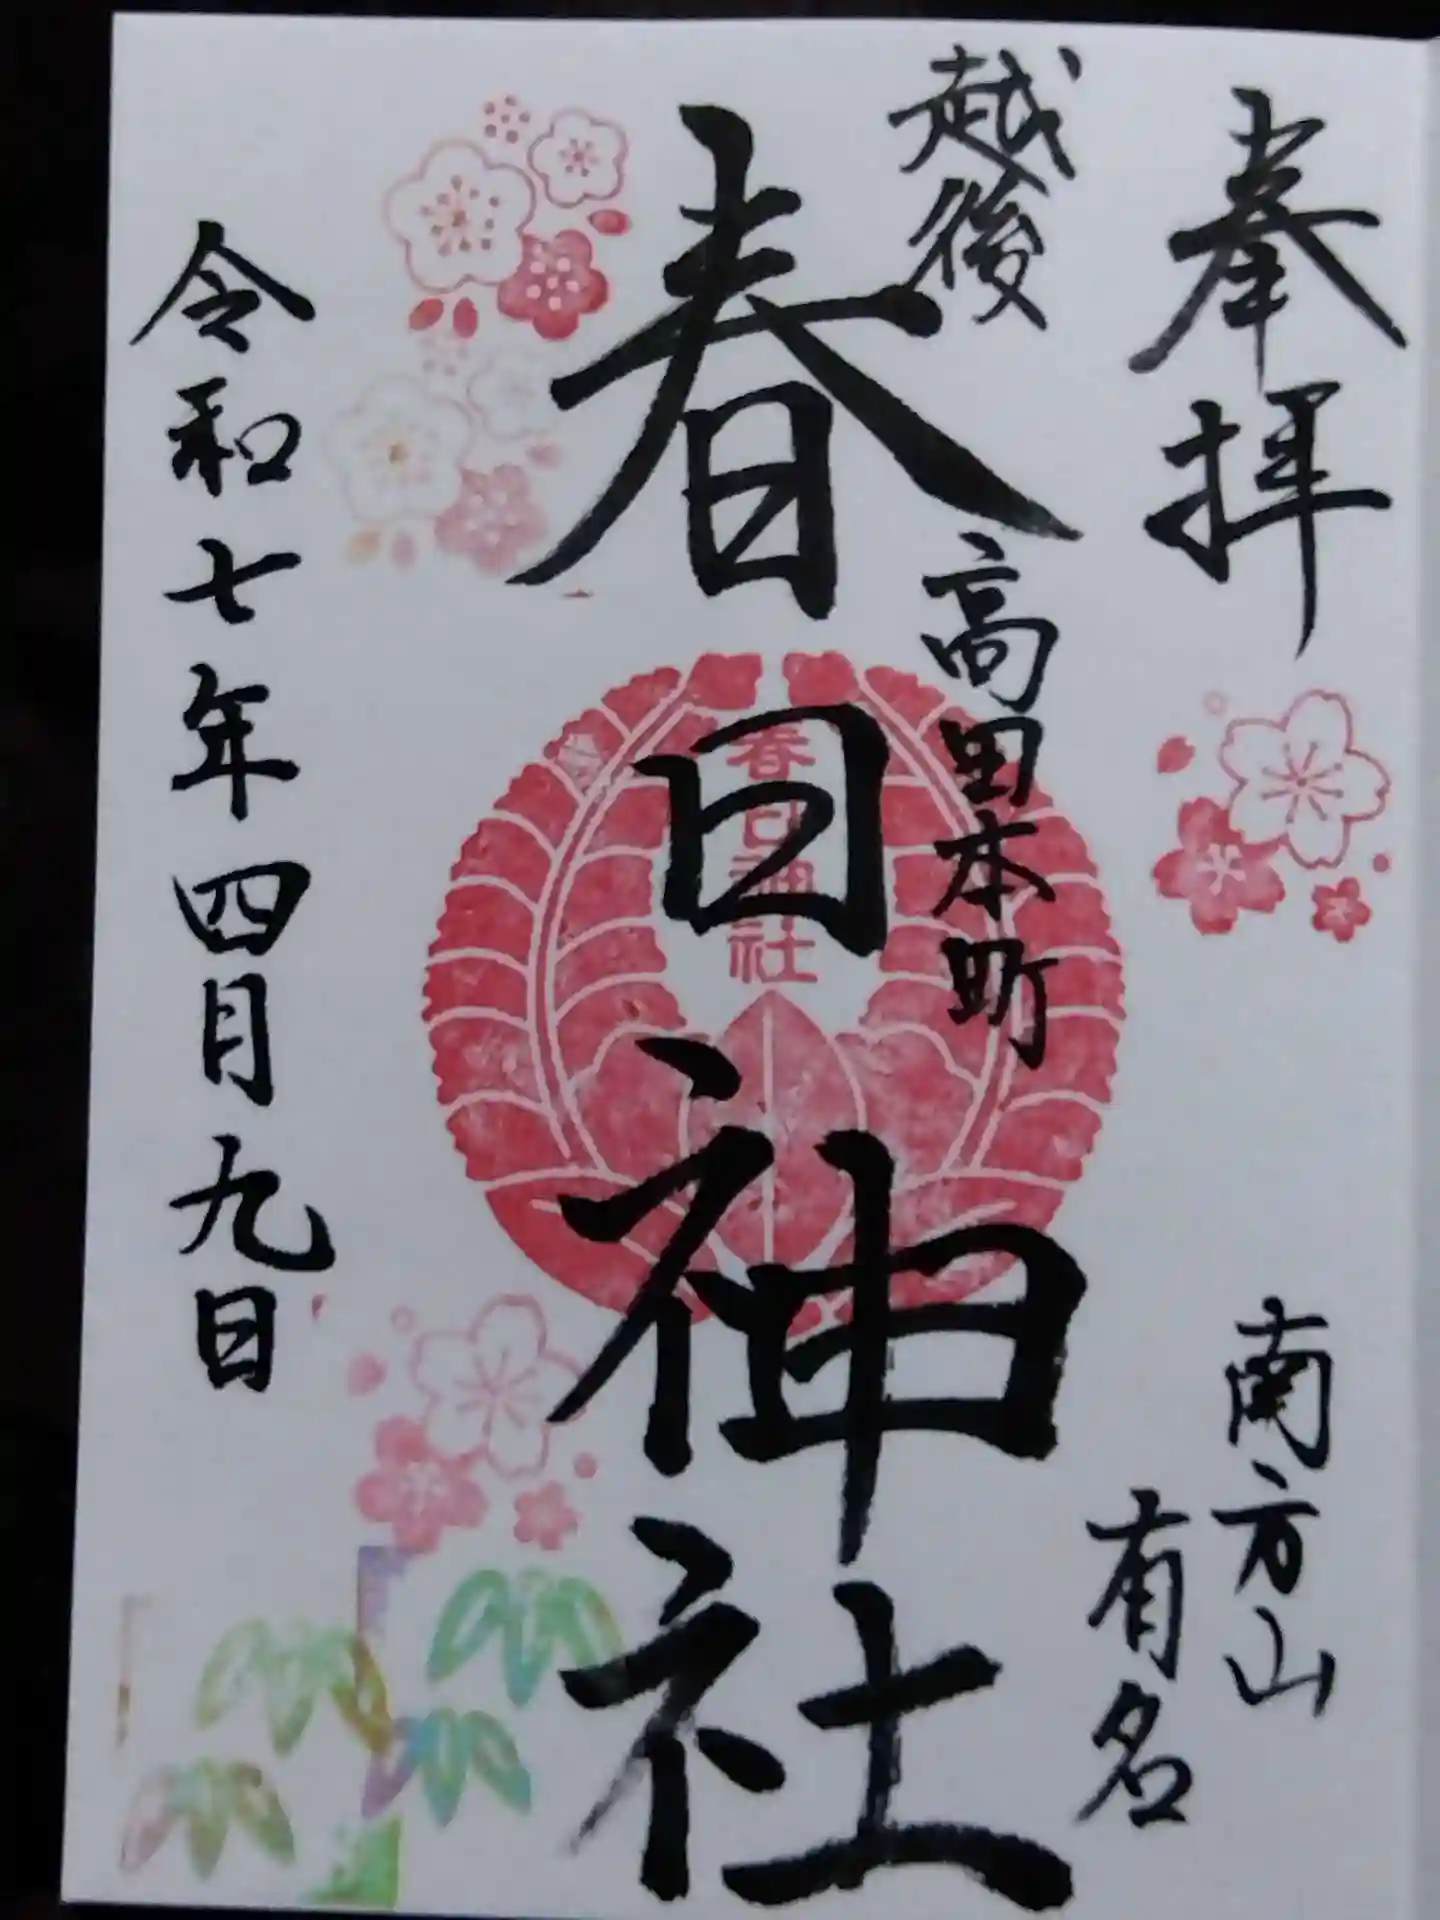 奉拝
南方山
有名
越後
高田本町
春日神社
春日神社
令和七年四月九日